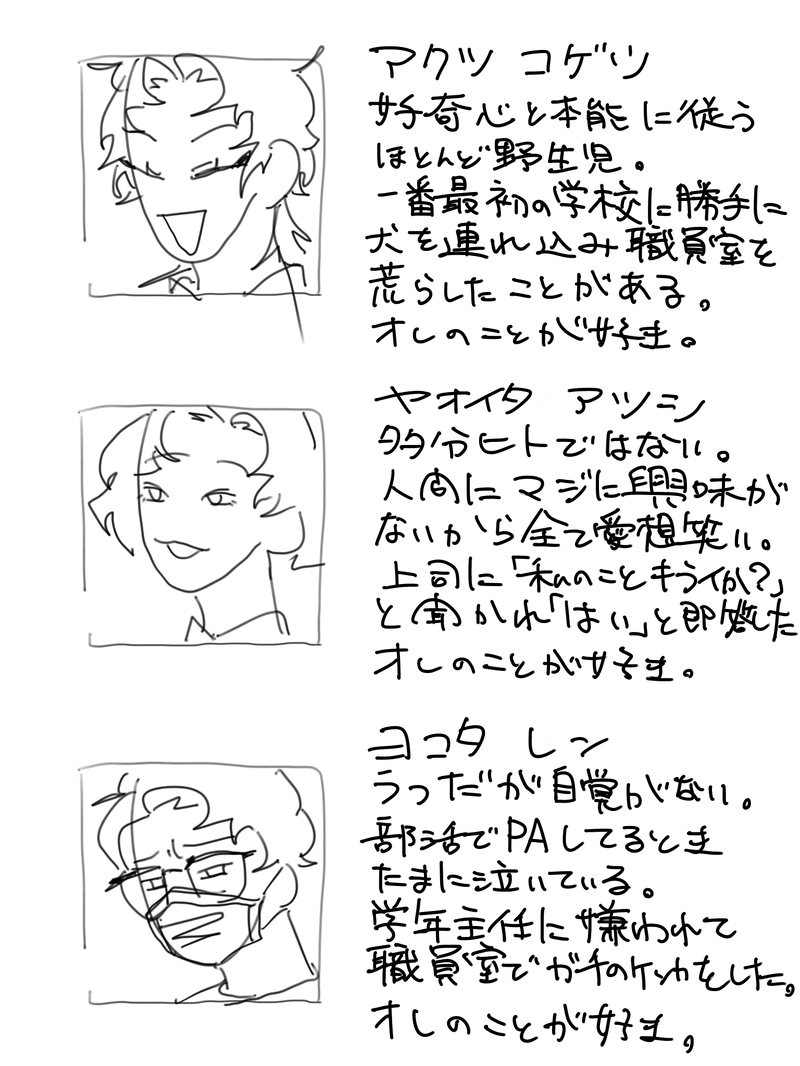 アクツ コゲツ
好奇心と本能に従う
ほとんど野生児。
一番最初の学校に勝手に
犬を連れ込み職員室を
荒らしたことがある。
オレのことが好き。
ヤオイタ アツシ
多分ヒトではない。
人間にマジに興味が
ないから全て愛想笑い。
上司に「私のことキライか?」
と聞かれ「はい」と即答した
オレのことが好き。
ヨコタ レン
うつだが自覚がない。
部活でPAしてるとき
たまに泣いている。
学年主任に嫌われて
職員室でガチのケンカをした。
オレのことが好き。